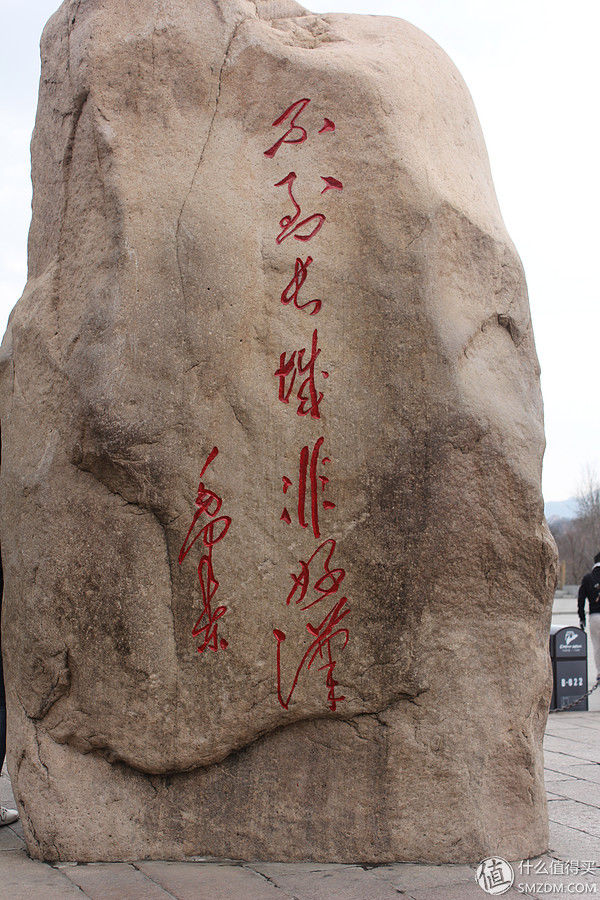 不到长城非好汉
毛泽东
B-022
值 什么值得买
SMZDM.COM